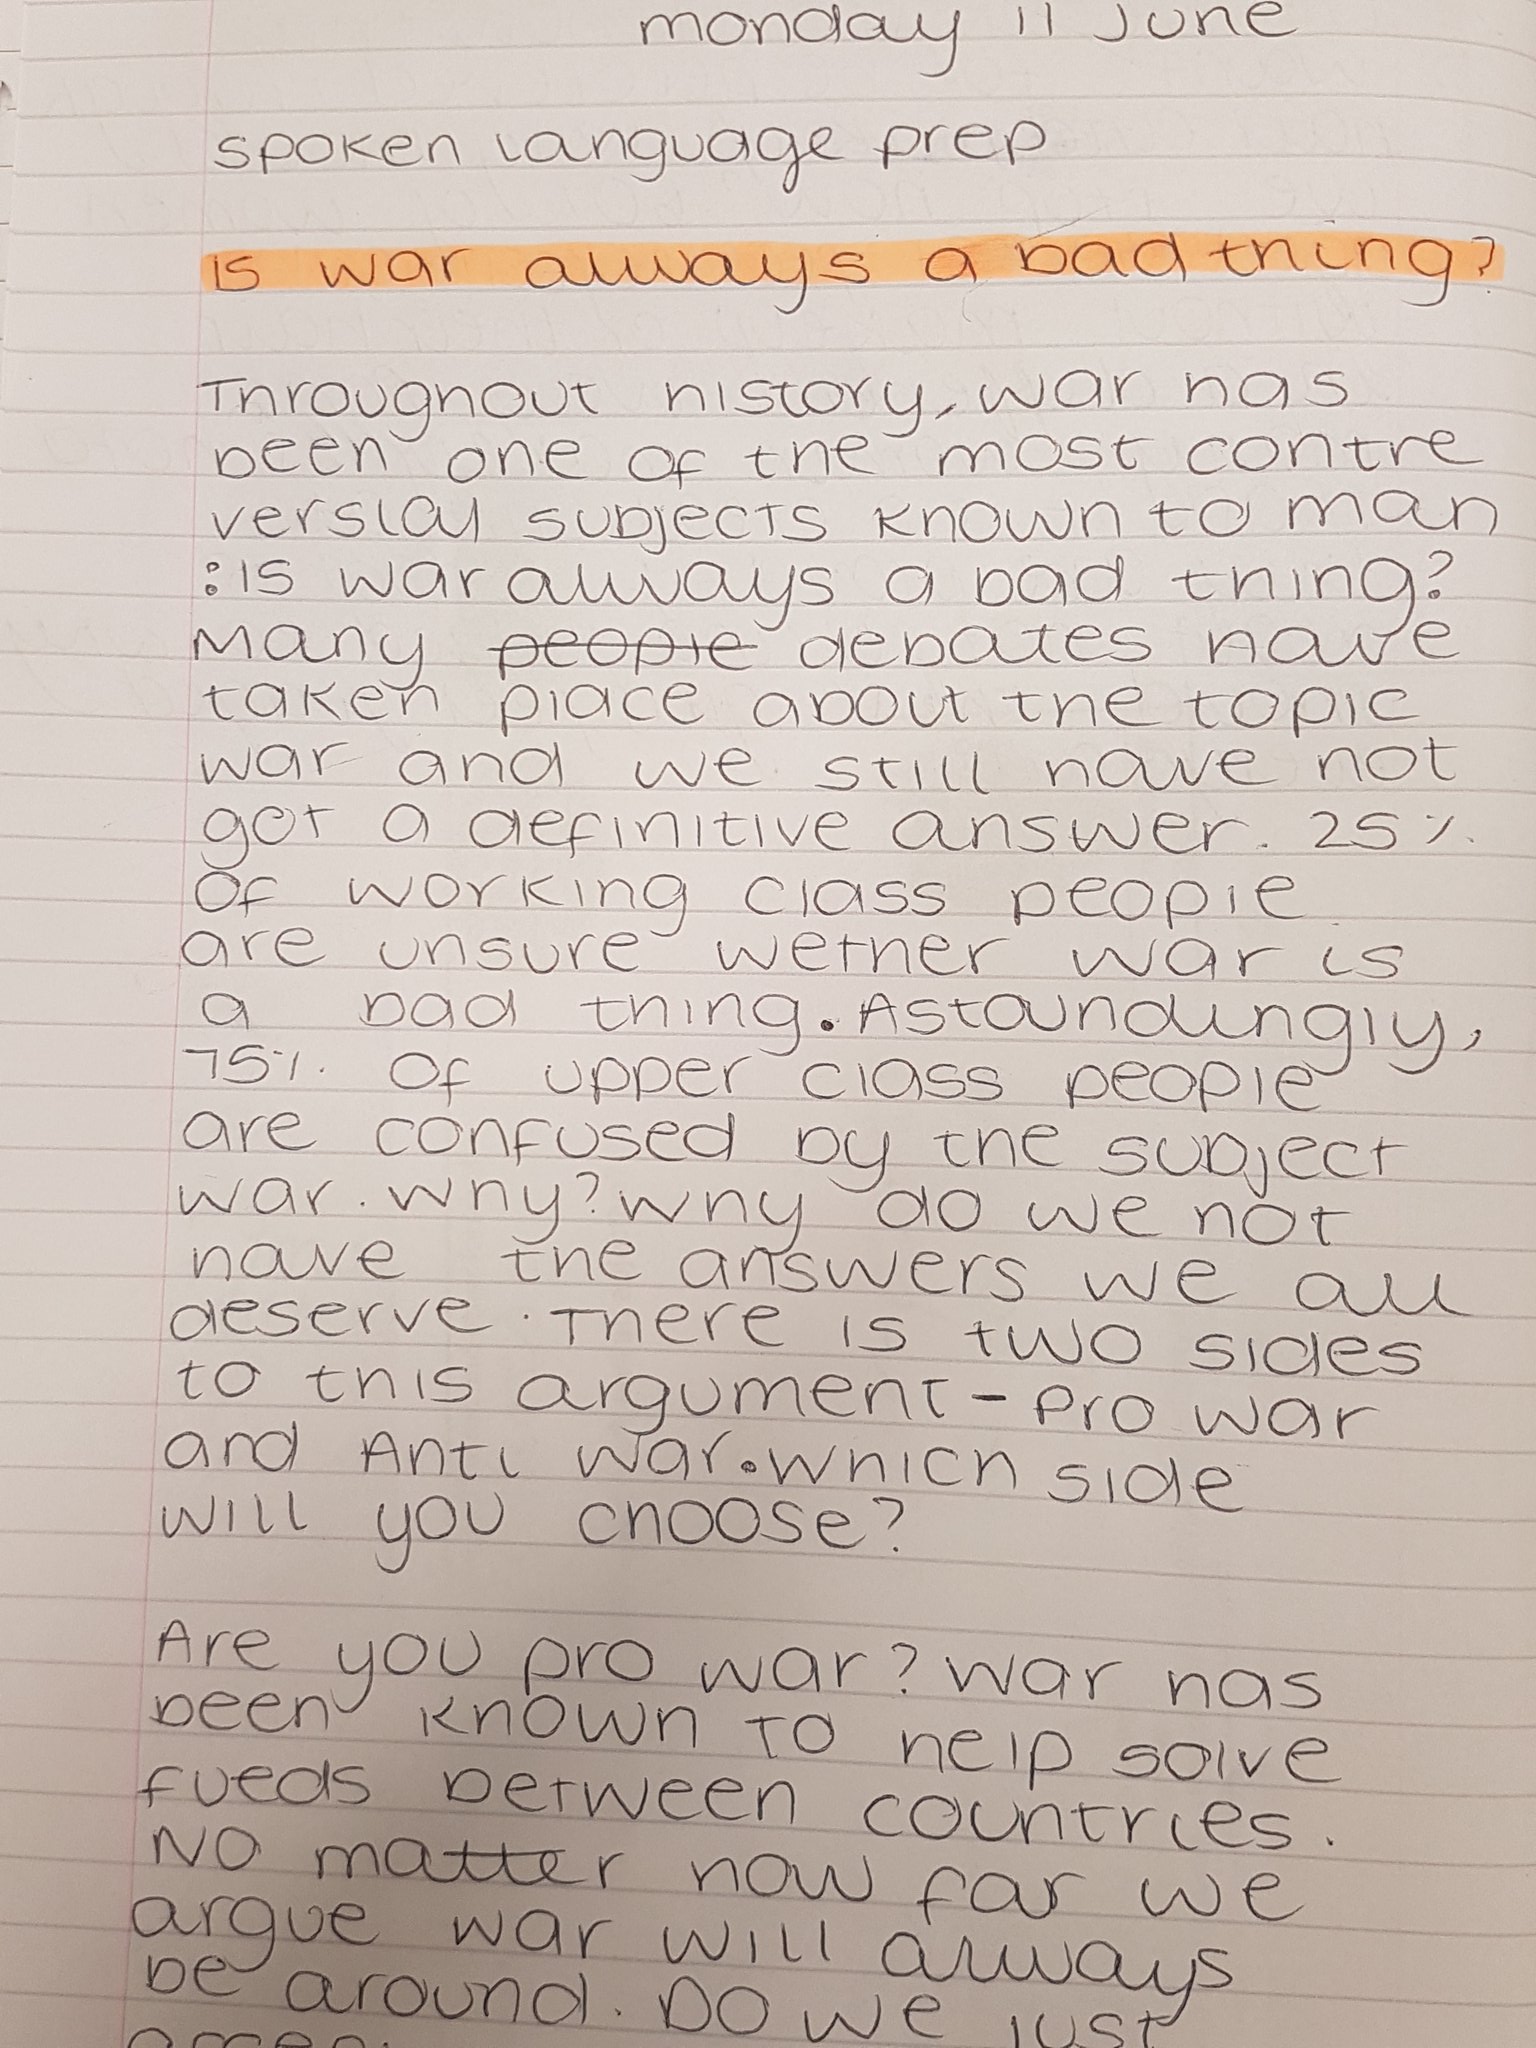 monday 11 June
spoken language prep
is war always a bad thing?
Throughout history, war has
been one of the most contre
versial subjects known to man
: is war always a bad thing?
Many people debates have
taken place about the topic
war and we still have not
got a definitive answer. 25%
of working class people
are unsure wether war is
a bad thing. Astoundingly,
75% of upper class people
are confused by the subject
war. Why? Why do we not
have the answers we all
deserve. There is two sides
to this argument - pro war
and Anti war. Which side
will you choose?
Are you pro war? War has
been known to help solve
fueds between countries.
No matter how far we
argue war will always
be around. Do we just